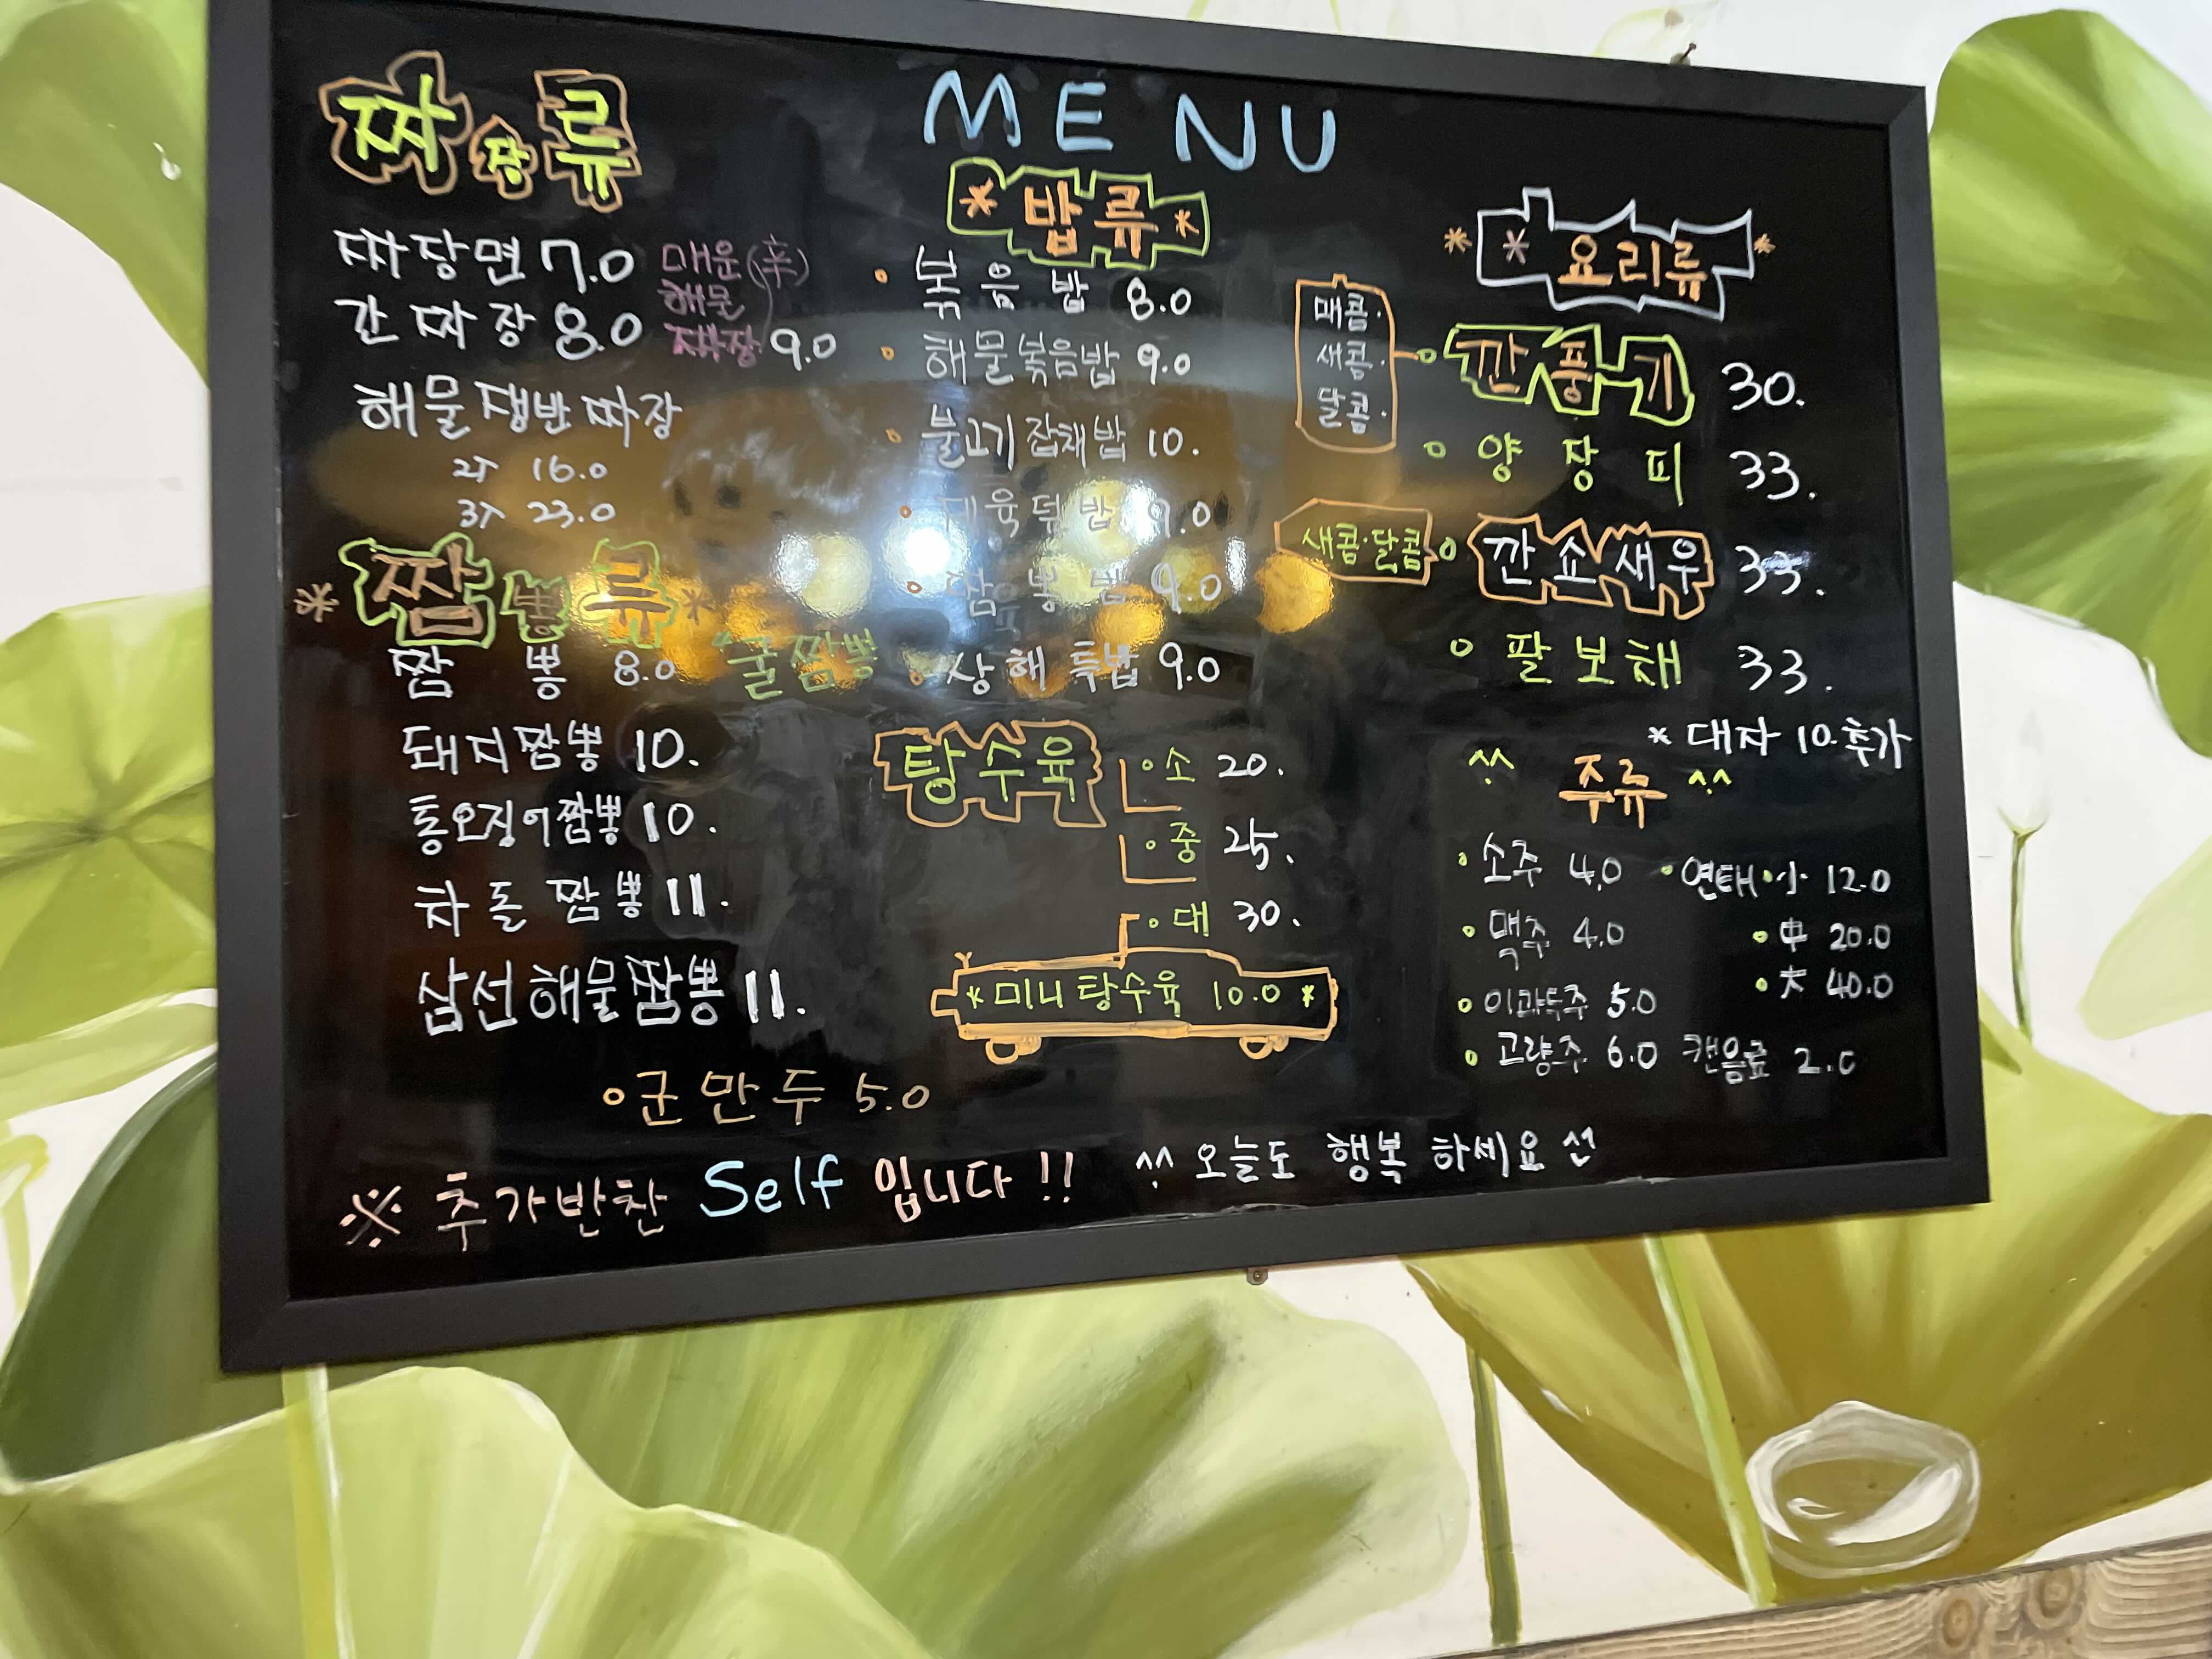 MENU
짜장류
짜장면 7.0
간짜장 8.0
매운(辛)
해물
짜장 9.0
해물쟁반짜장
2人 16.0
3人 23.0
* 짬뽕류 *
짬뽕 8.0 굴짬뽕
돼지짬뽕 10.
통오징어짬뽕 10.
차돌짬뽕 11.
삼선해물짬뽕 11.
•군만두 5.0
* 밥류 *
• 볶음밥 8.0
• 해물볶음밥 9.0
• 불고기잡채밥 10.
• 제육덮밥 9.0
• 짬뽕밥 9.0
• 상해특밥 9.0
탕수육
•소 20.
•중 25.
•대 30.
* 미니탕수육 10.0 *
* * 요리류 *
매콤·
새콤·
달콤·
깐풍기 30.
양장피 33.
새콤·달콤
깐쇼새우 33.
팔보채 33.
* 대자 10.추가
^^ 주류 ^^
•소주 4.0
•맥주 4.0
•이과두주 5.0
•고량주 6.0
•연태•小 12.0
•中 20.0
•大 40.0
캔음료 2.0
※ 추가반찬 Self 입니다!! ^^ 오늘도 행복 하세요